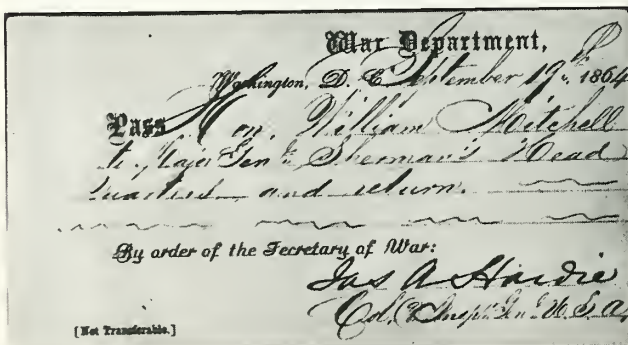 War Department,
Washington, D. C. September 19th 1864
Pass Hon. William Mitchell
to Major Genl Sherman's Head
Quarters and return.
By order of the Secretary of War:
Jas A Hardie
Col. & Insp. Gn. U. S. A.
[Not Transferable.]